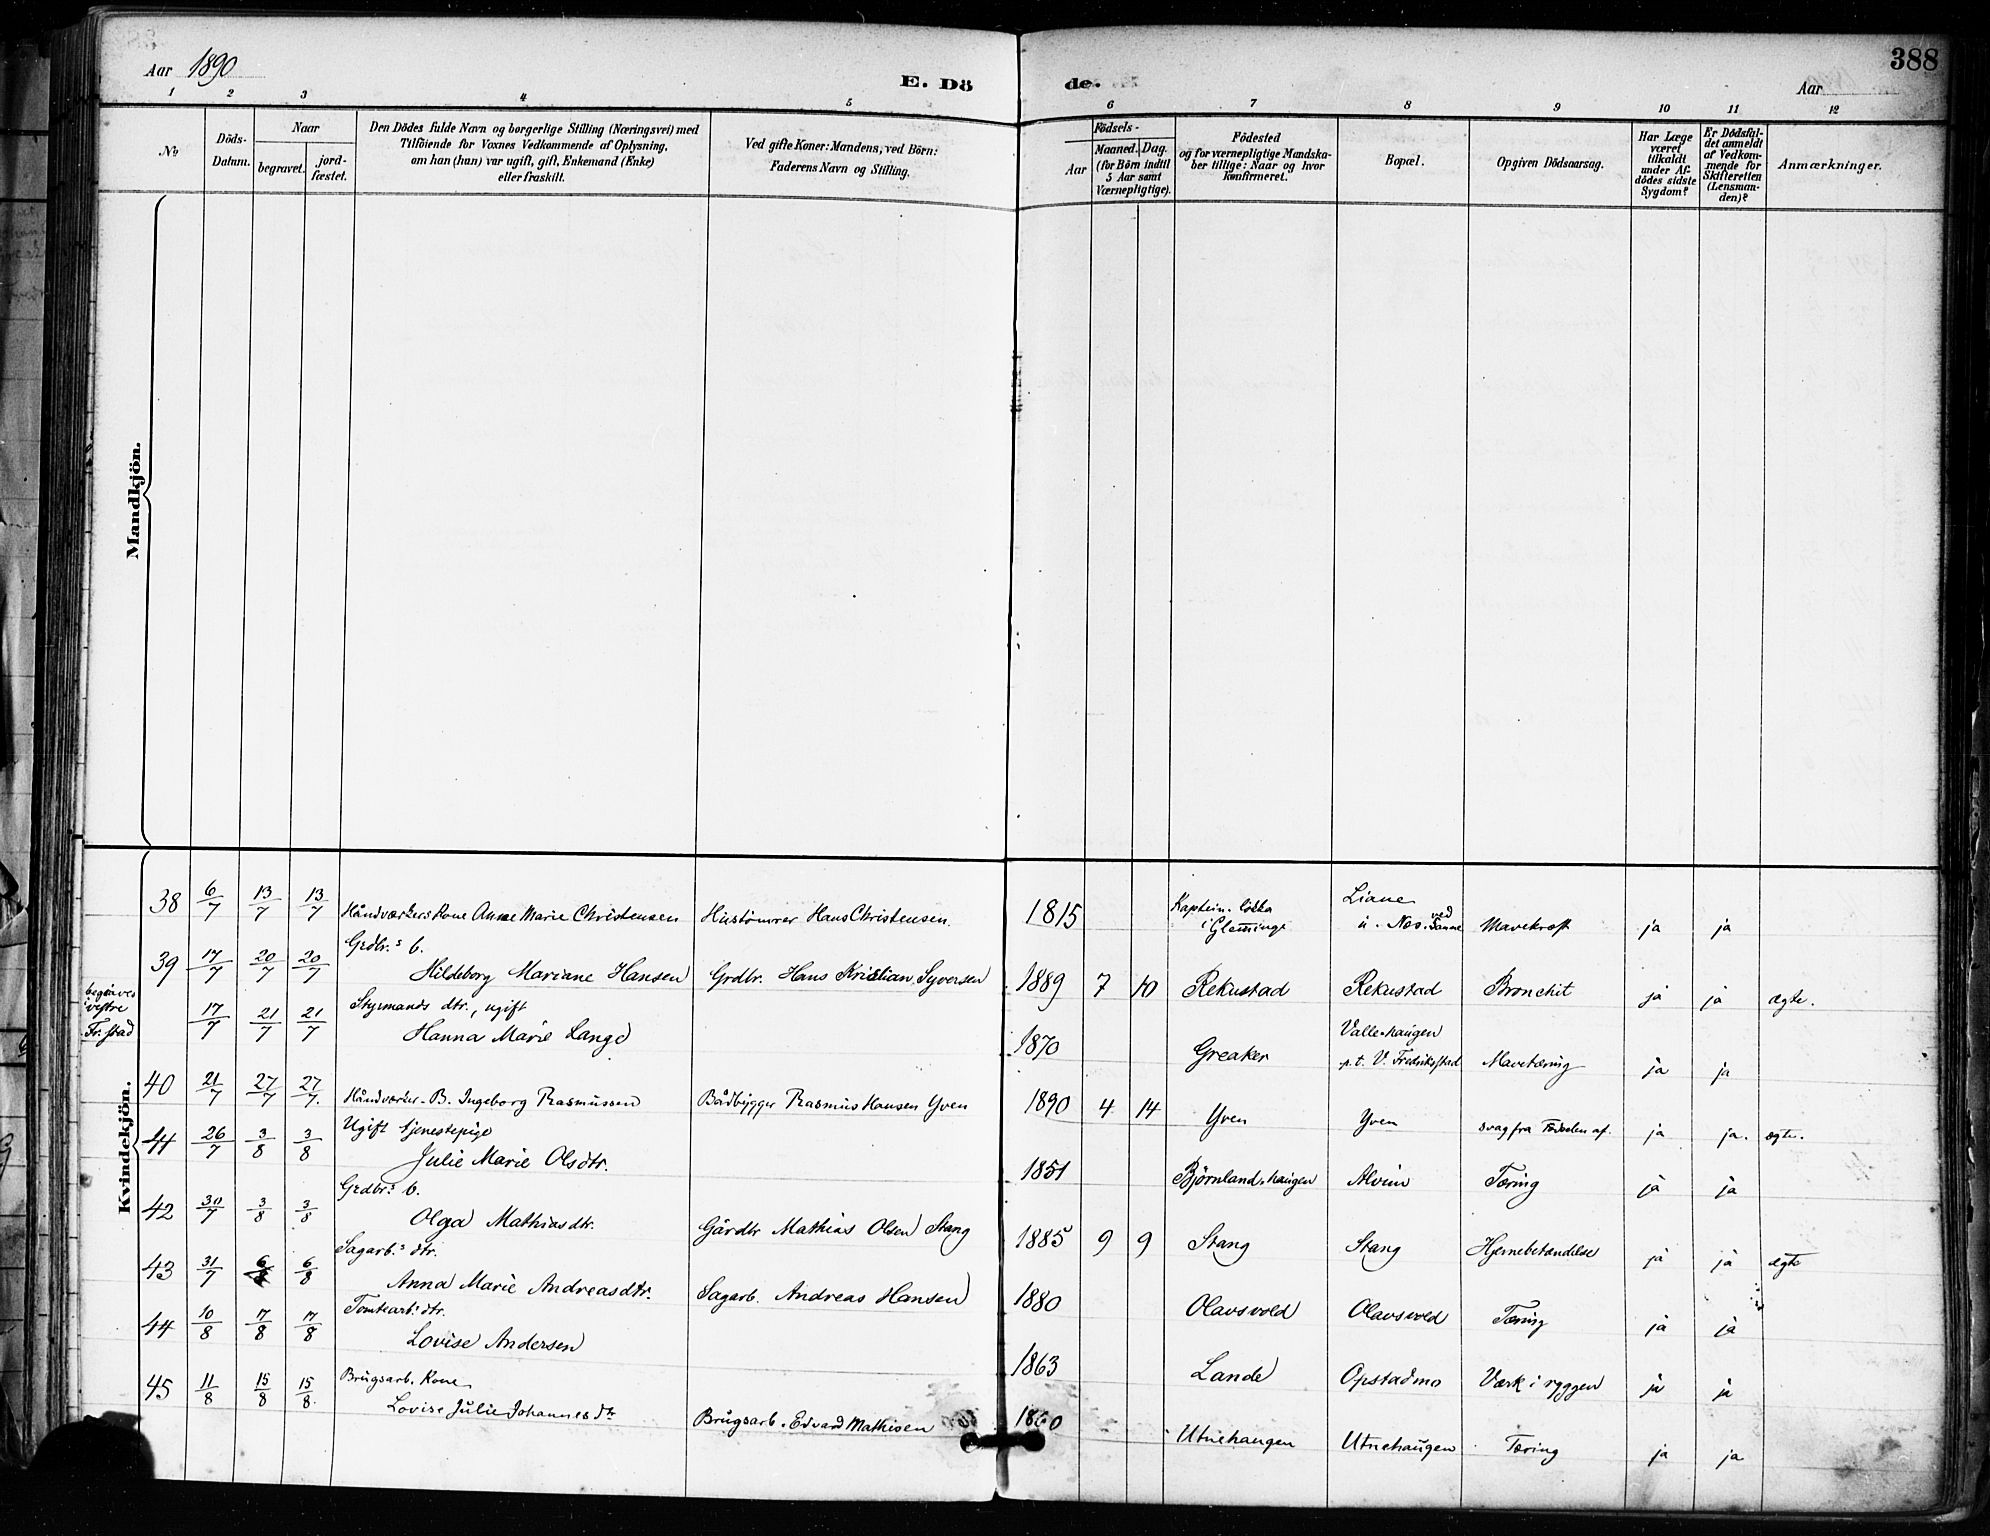 Aar 1890
E. Dö
de.
388
Aar
1 2 3 4 5 6 7 8 9 10 11 12
No
Döds-
Datum.
Naar
begravet.
jord-
fæstet.
Den Dödes fulde Navn og borgerlige Stilling (Næringsvei) med
Tilföiende for Voxnes Vedkommende af Oplysning,
om han (hun) var ugift, gift, Enkemand (Enke)
eller fraskilt.
Ved gifte Koner: Mandens, ved Börn:
Faderens Navn og Stilling.
Födsels-
Aar
Maaned. Dag.
(for Börn indtil
5 Aar samt
Værnepligtige).
Födested
og for værnepligtige Mandska-
ber tillige: Naar og hvor
konfirmeret.
Bopæl.
Opgiven Dödsaarsag.
Har Læge
været
tilkaldt
under Af-
dödes sidste
Sygdom?
Er Dödsfal-
det anmeldt
af Vedkom-
mende for
Skifteretten
(Lensman-
den)?
Anmærkninger.
Mandkjön.
Kvindekjön.
38 6/7 13/7 13/7 Håndværkers Kone Anne Marie Christensen Hustömrer Hans Christensen. 1815 Kaptein-løkka i Glemminge Liane u. Nos. ved Sanne Mavekræft ja ja
39 17/7 20/7 20/7 Grdbr.s b.
Hildeborg Mariane Hansen Grdbr. Hans Kristian Syversen 1889 7 10 Rekustad Rekustad Bronchit ja ja ægte.
begraves
vestre
Fr.stad
17/7 21/7 21/7 Styrmands dtr., ugift
Hanna Marie Lange 1870 Greaker Vallehaugen
p.t. V. Fredriksstad Mavetæring ja ja
40 21/7 27/7 27/7 Håndværker-B. Ingeborg Rasmussen Bådbygger Rasmus Hansen Yven 1890 4 14 Yven Yven svag fra Fødselen af. ja ja. ægte.
41 26/7 3/8 3/8 Ugift tjenestepige
Julie Marie Olsdtr. 1851 Bjørnlandshaugen Alvim Tæring ja ja
42 30/7 3/8 3/8 Grdbr.s b.
Olga Mathiasdtr. Gårdbr Mathias Olsen Stang 1885 9 9 Stang Stang Hjernebetændelse ja ja ægte
43 31/7 6/8 6/8 Sagarb.s dtr.
Anna Marie Andreasdtr. Sagarb. Andreas Hansen 1880 Olavsvold Olavsvold Tæring ja ja
44 10/8 17/8 17/8 Tomtearb.s dtr.
Lovise Andersen 1863 Lande Opstadmo Værk i ryggen ja ja
45 11/8 15/8 15/8 Brugsarb. Kone
Lovise Julie Johannesdtr Brugsarb. Edvard Mathisen 1860 Utnehaugen Utnehaugen Tæring ja ja